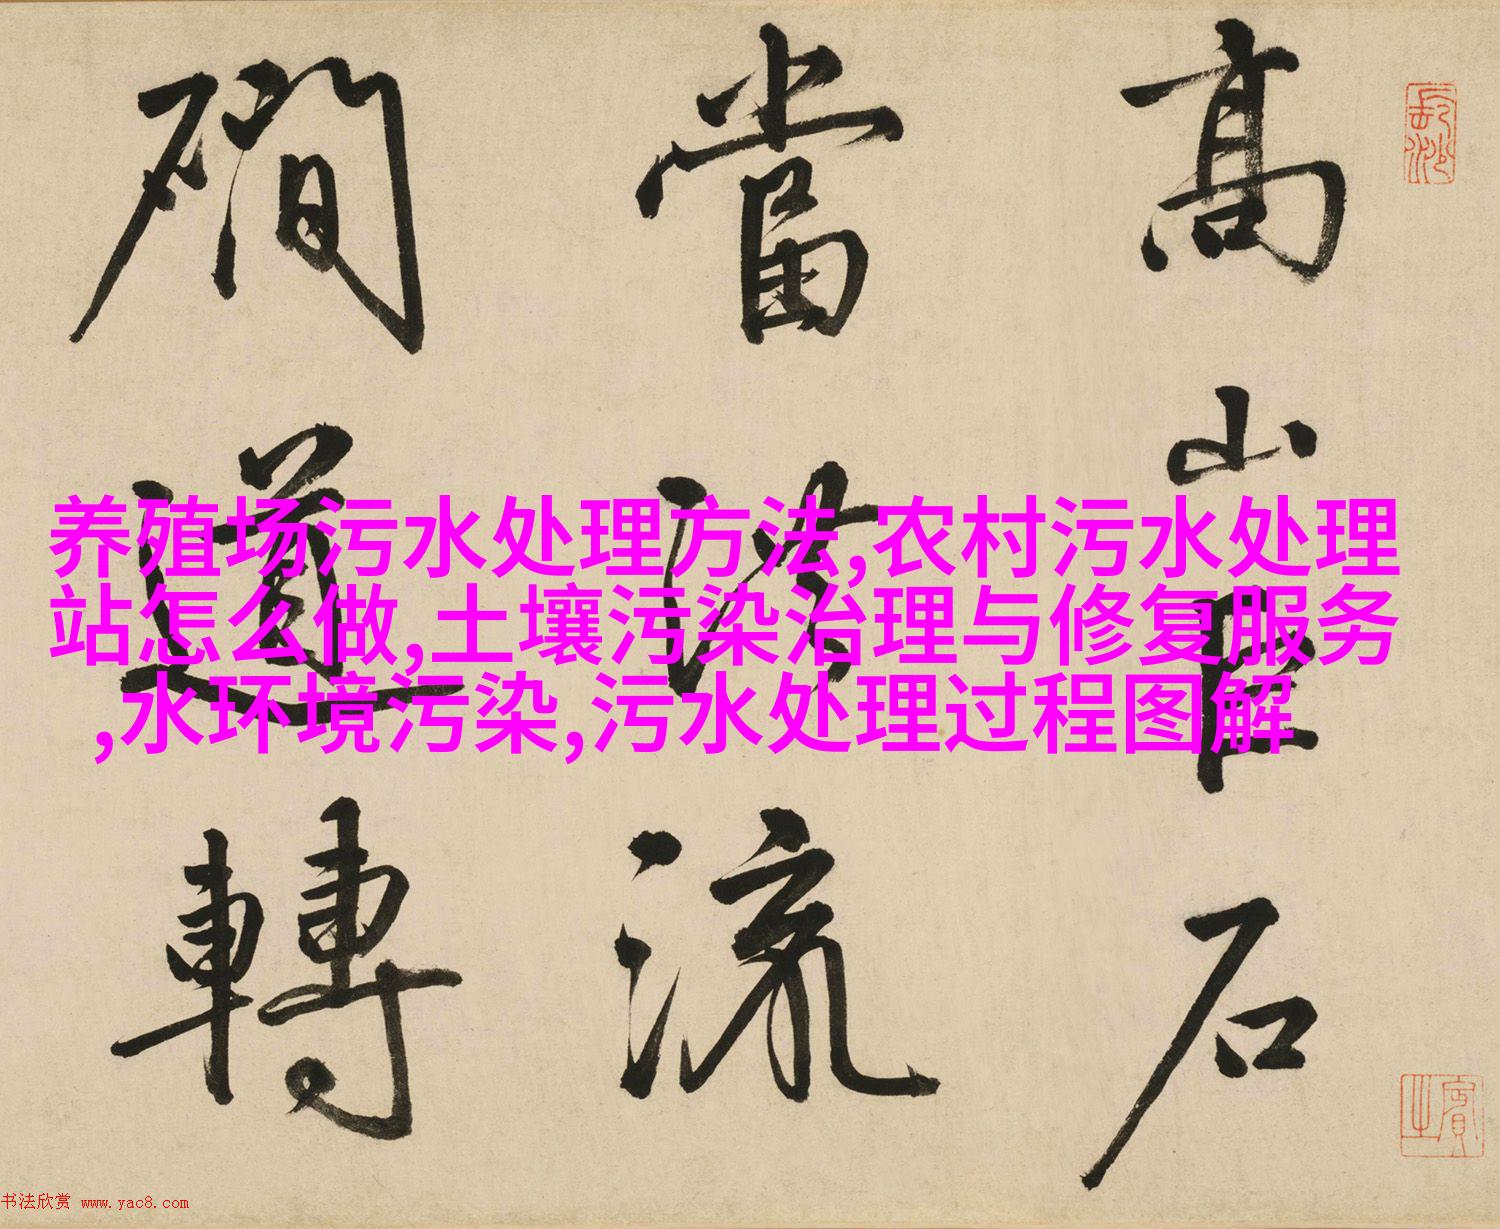 高山巨石
當洪流
磵道轉
養殖场污水处理方法,农村污水处理
站怎么做,土壤污染治理与修复服务
,水环境污染,污水处理过程图解
书法欣赏 www.yac8.com